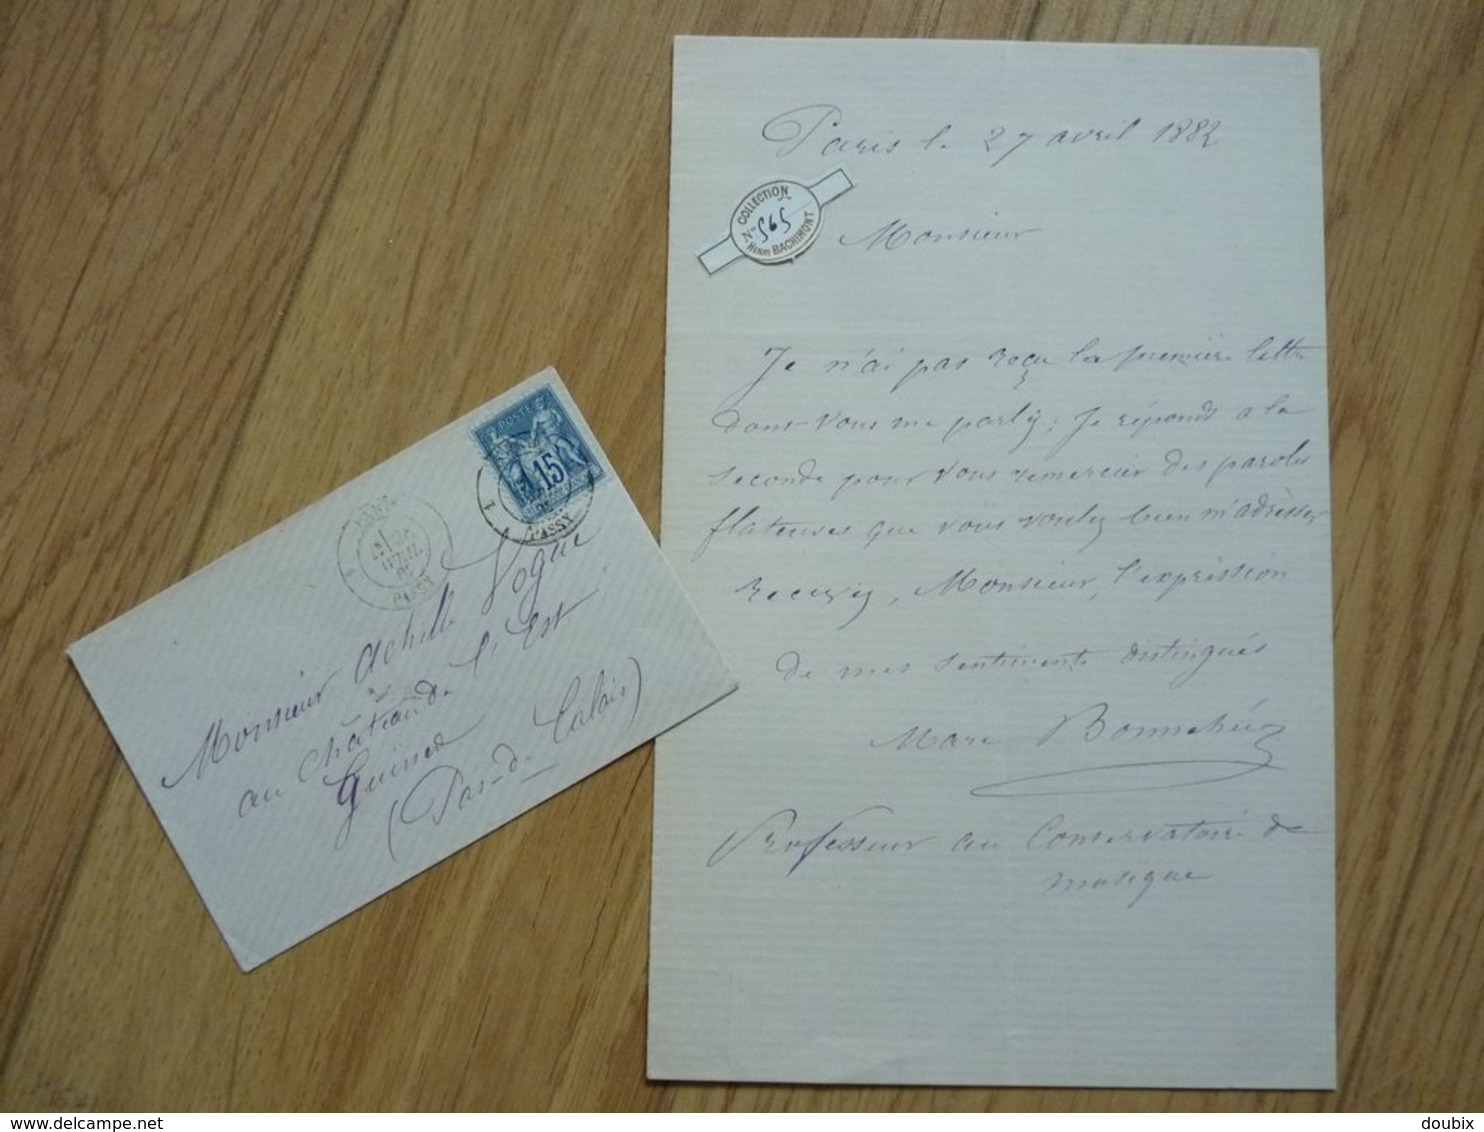 Paris le 27 avril 1882
COLLECTION
No. 565
HENRI BACHIMONT
Monsieur
Je n'ai pas reçu la première lettre
dont vous me parlez; je réponds a la
seconde pour vous remercier des paroles
flateuses que vous voulez bien m'adresser
Recevez, Monsieur, l'expression
de mes sentiments distingués
Marc Bonnehée
Professeur au Conservatoire de
musique
POSTE
15
PASSY
AVRIL
PASSY
Monsieur Achille Vogue
au Château de l'Est
Guines
(Pas-d. Calais)
delcampe.net
doubix